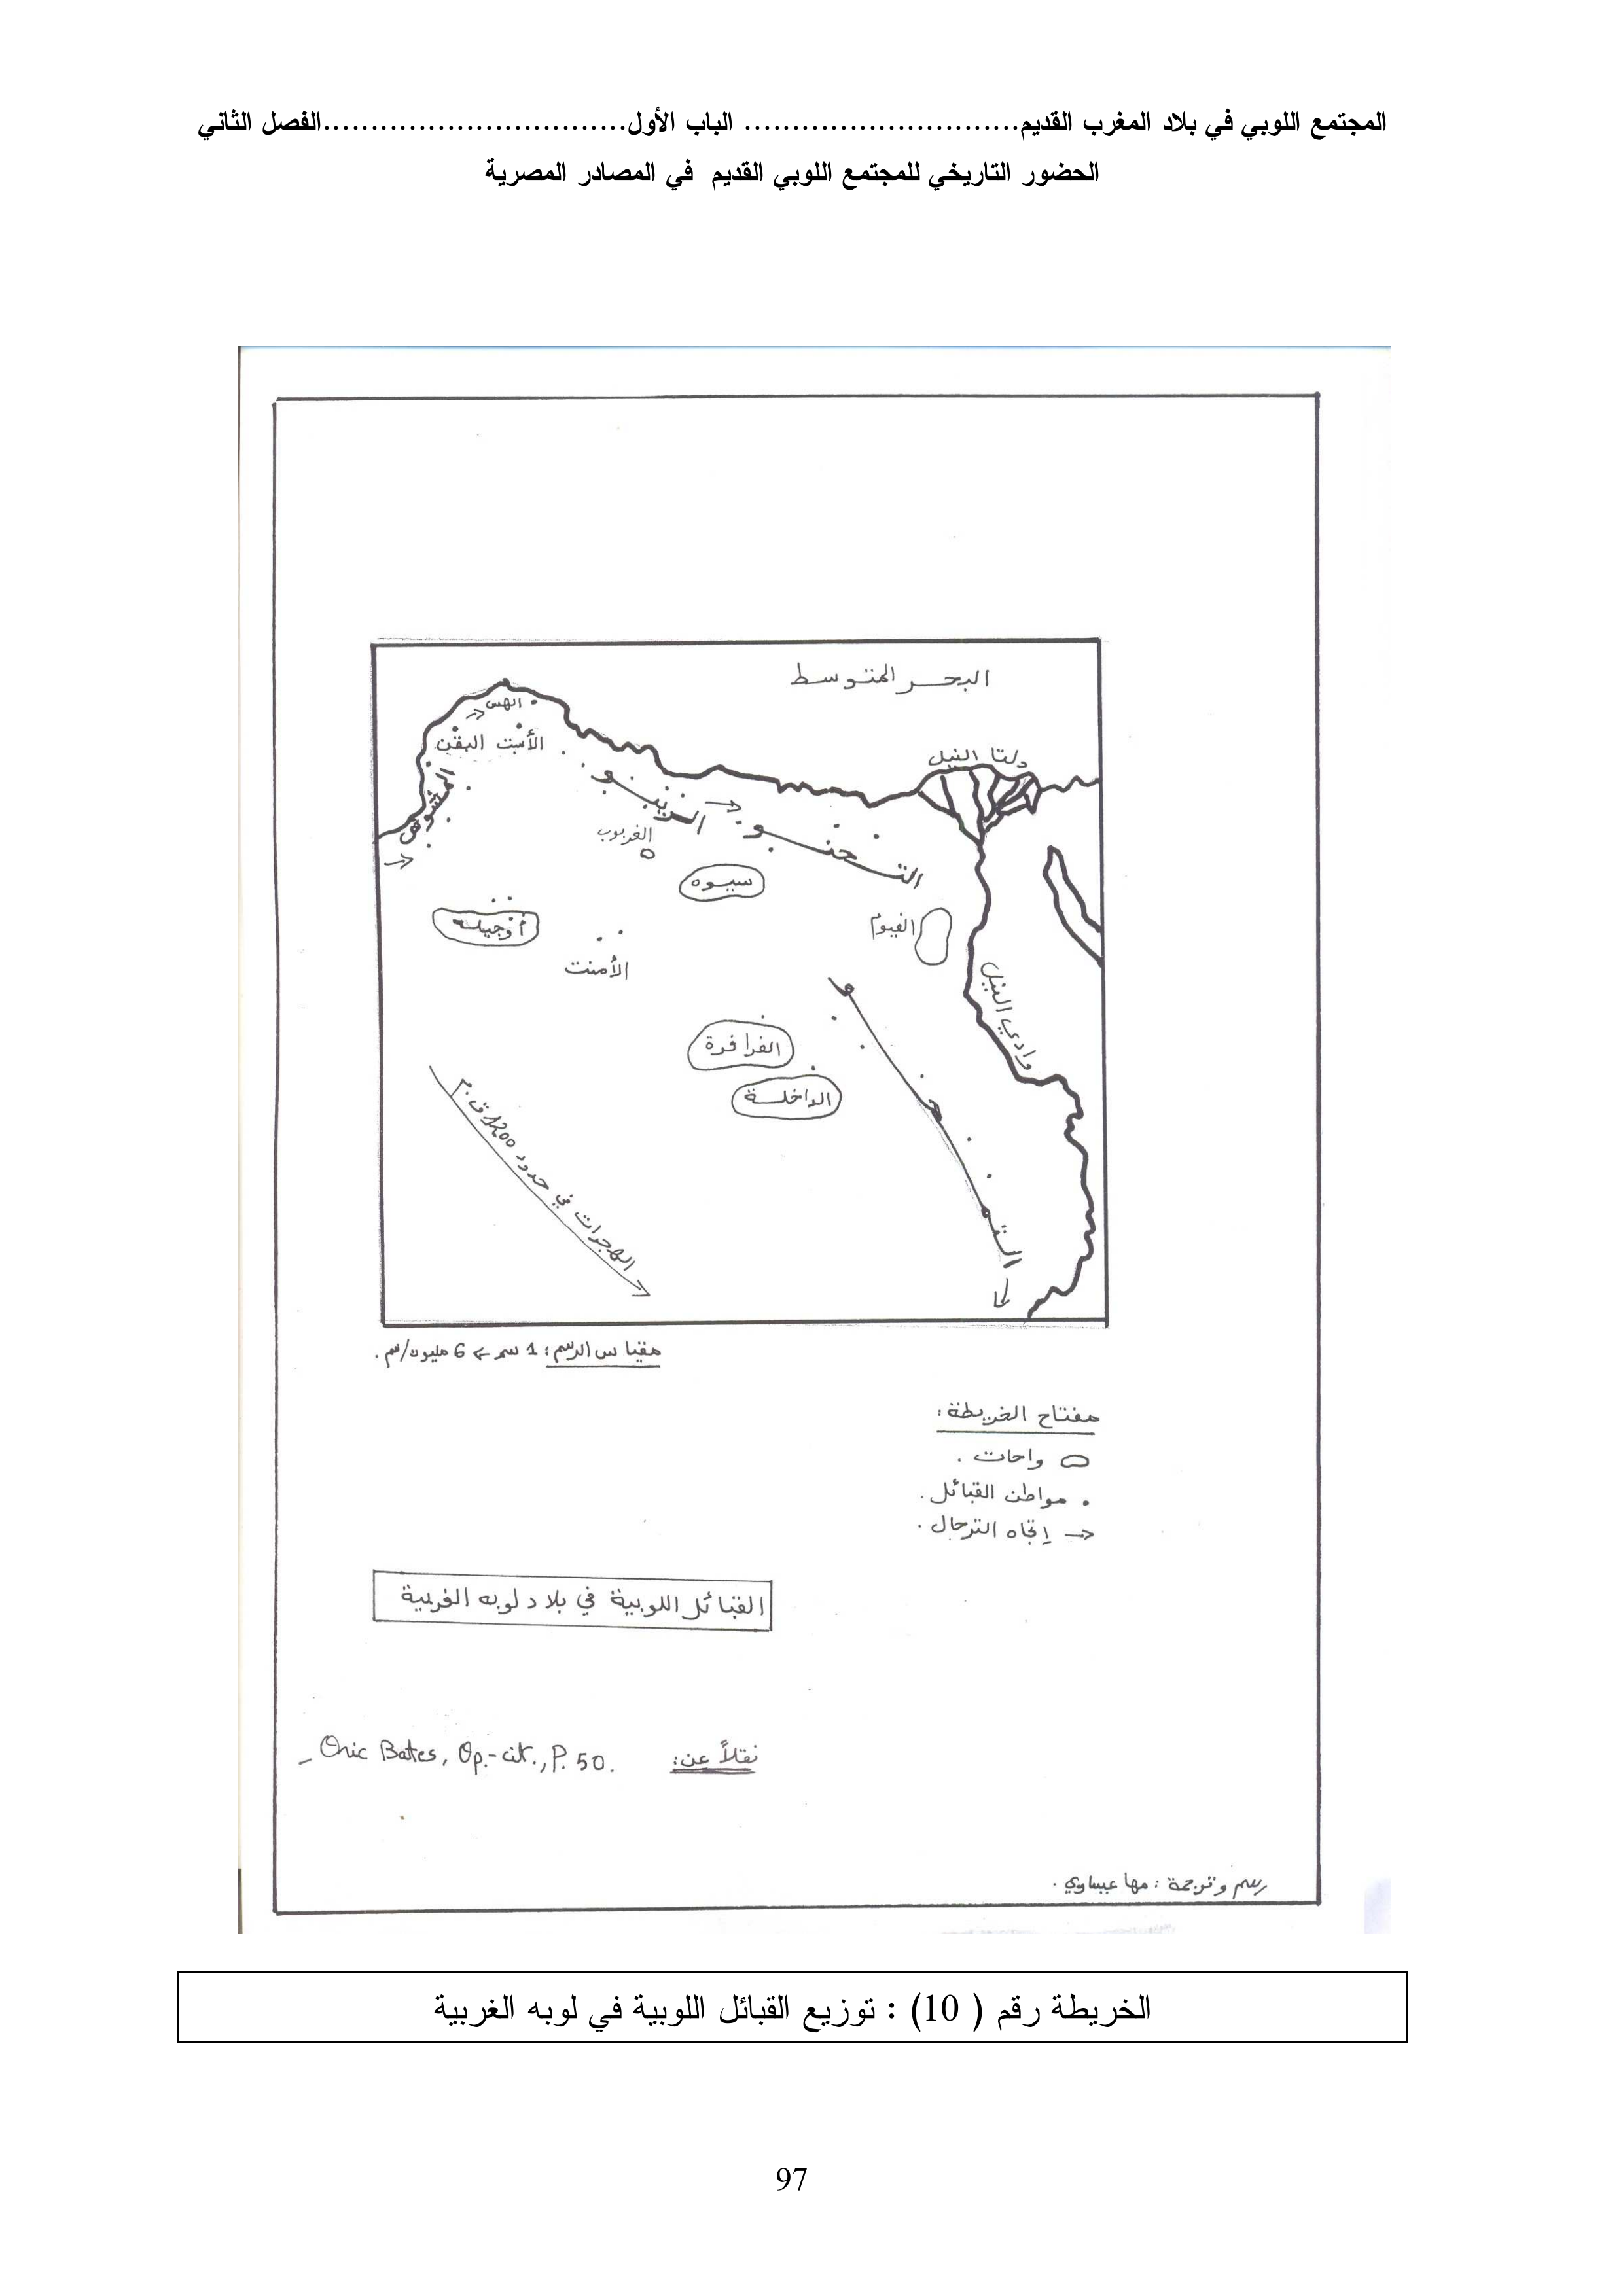 المجتمع اللوبي في بلاد المغرب القديم............................. الباب الأول................................الفصل الثاني
الحضور التاريخي للمجتمع اللوبي القديم في المصادر المصرية
البحر المتوسط
الهس
الأسبت البقن
دلتا النيل
المشوش
الربنو
التحنو
الغربوب
سيوه
أوجيلة
الفيوم
الأمنت
وادي النيل
الفرافرة
الداخلة
التمحو
الهجرات في حدود 1200 ق.م
مقياس الرسم: 1 سم ← 6 مليون/سم.
مفتاح الخريطة:
واحات.
• مواطن القبائل.
→ إتجاه الترحال.
القبائل اللوبية في بلاد لوبه الغربية
نقلاً عن:
– Oric Bates, Op.-cit., P. 50.
رسم وترجمة: مها عيساوي.
الخريطة رقم ( 10) : توزيع القبائل اللوبية في لوبه الغربية
97